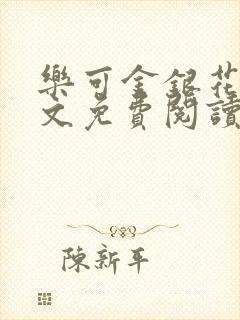 樂可金銀花
文免費閱讀
陳新平